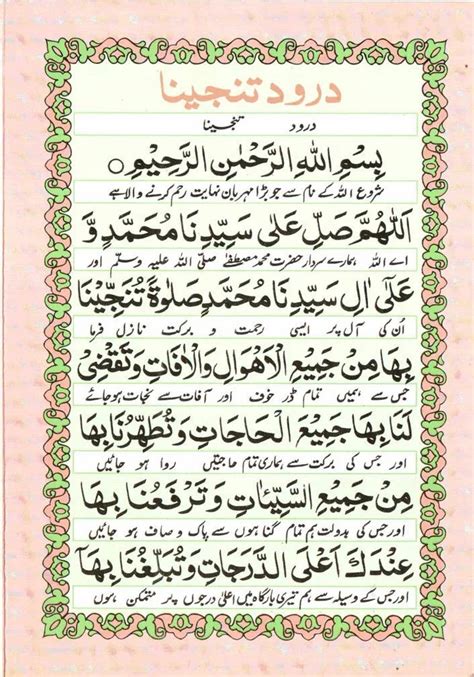 درود تنجینا
درود تنجینا
بِسْمِ اللهِ الرَّحْمٰنِ الرَّحِيْمِ ○
شروع اللہ کے نام سے جو بڑا مہربان نہایت رحم کرنے والا ہے
اَللّٰهُمَّ صَلِّ عَلٰى سَيِّدِنَا مُحَمَّدٍ وَّ
اے اللہ ہمارے سردار حضرت محمد مصطفےٰ صلی اللہ علیہ وسلم اور
عَلٰٓى اٰلِ سَيِّدِنَا مُحَمَّدٍ صَلٰوةً تُنَجِّيْنَا
اُن کی آل پر ایسی رحمت و برکت نازل فرما
بِهَا مِنْ جَمِيْعِ الْاَهْوَالِ وَالْاٰفَاتِ وَتَقْضِىْ
جس سے ہمیں تمام ڈر خوف اور آفات سے نجات ہو جائے
لَنَا بِهَا جَمِيْعَ الْحَاجَاتِ وَتُطَهِّرُنَا بِهَا
اور جس کی برکت سے ہماری تمام حاجتیں روا ہو جائیں
مِنْ جَمِيْعِ السَّيِّاٰتِ وَتَرْفَعُنَا بِهَا
اور جس کی بدولت ہم تمام گناہوں سے پاک و صاف ہو جائیں
عِنْدَكَ اَعْلَى الدَّرَجَاتِ وَتُبَلِّغُنَا بِهَآ
اور جس کے وسیلہ سے ہم تیری بارگاہ میں اعلیٰ درجوں پر متمکن ہوں